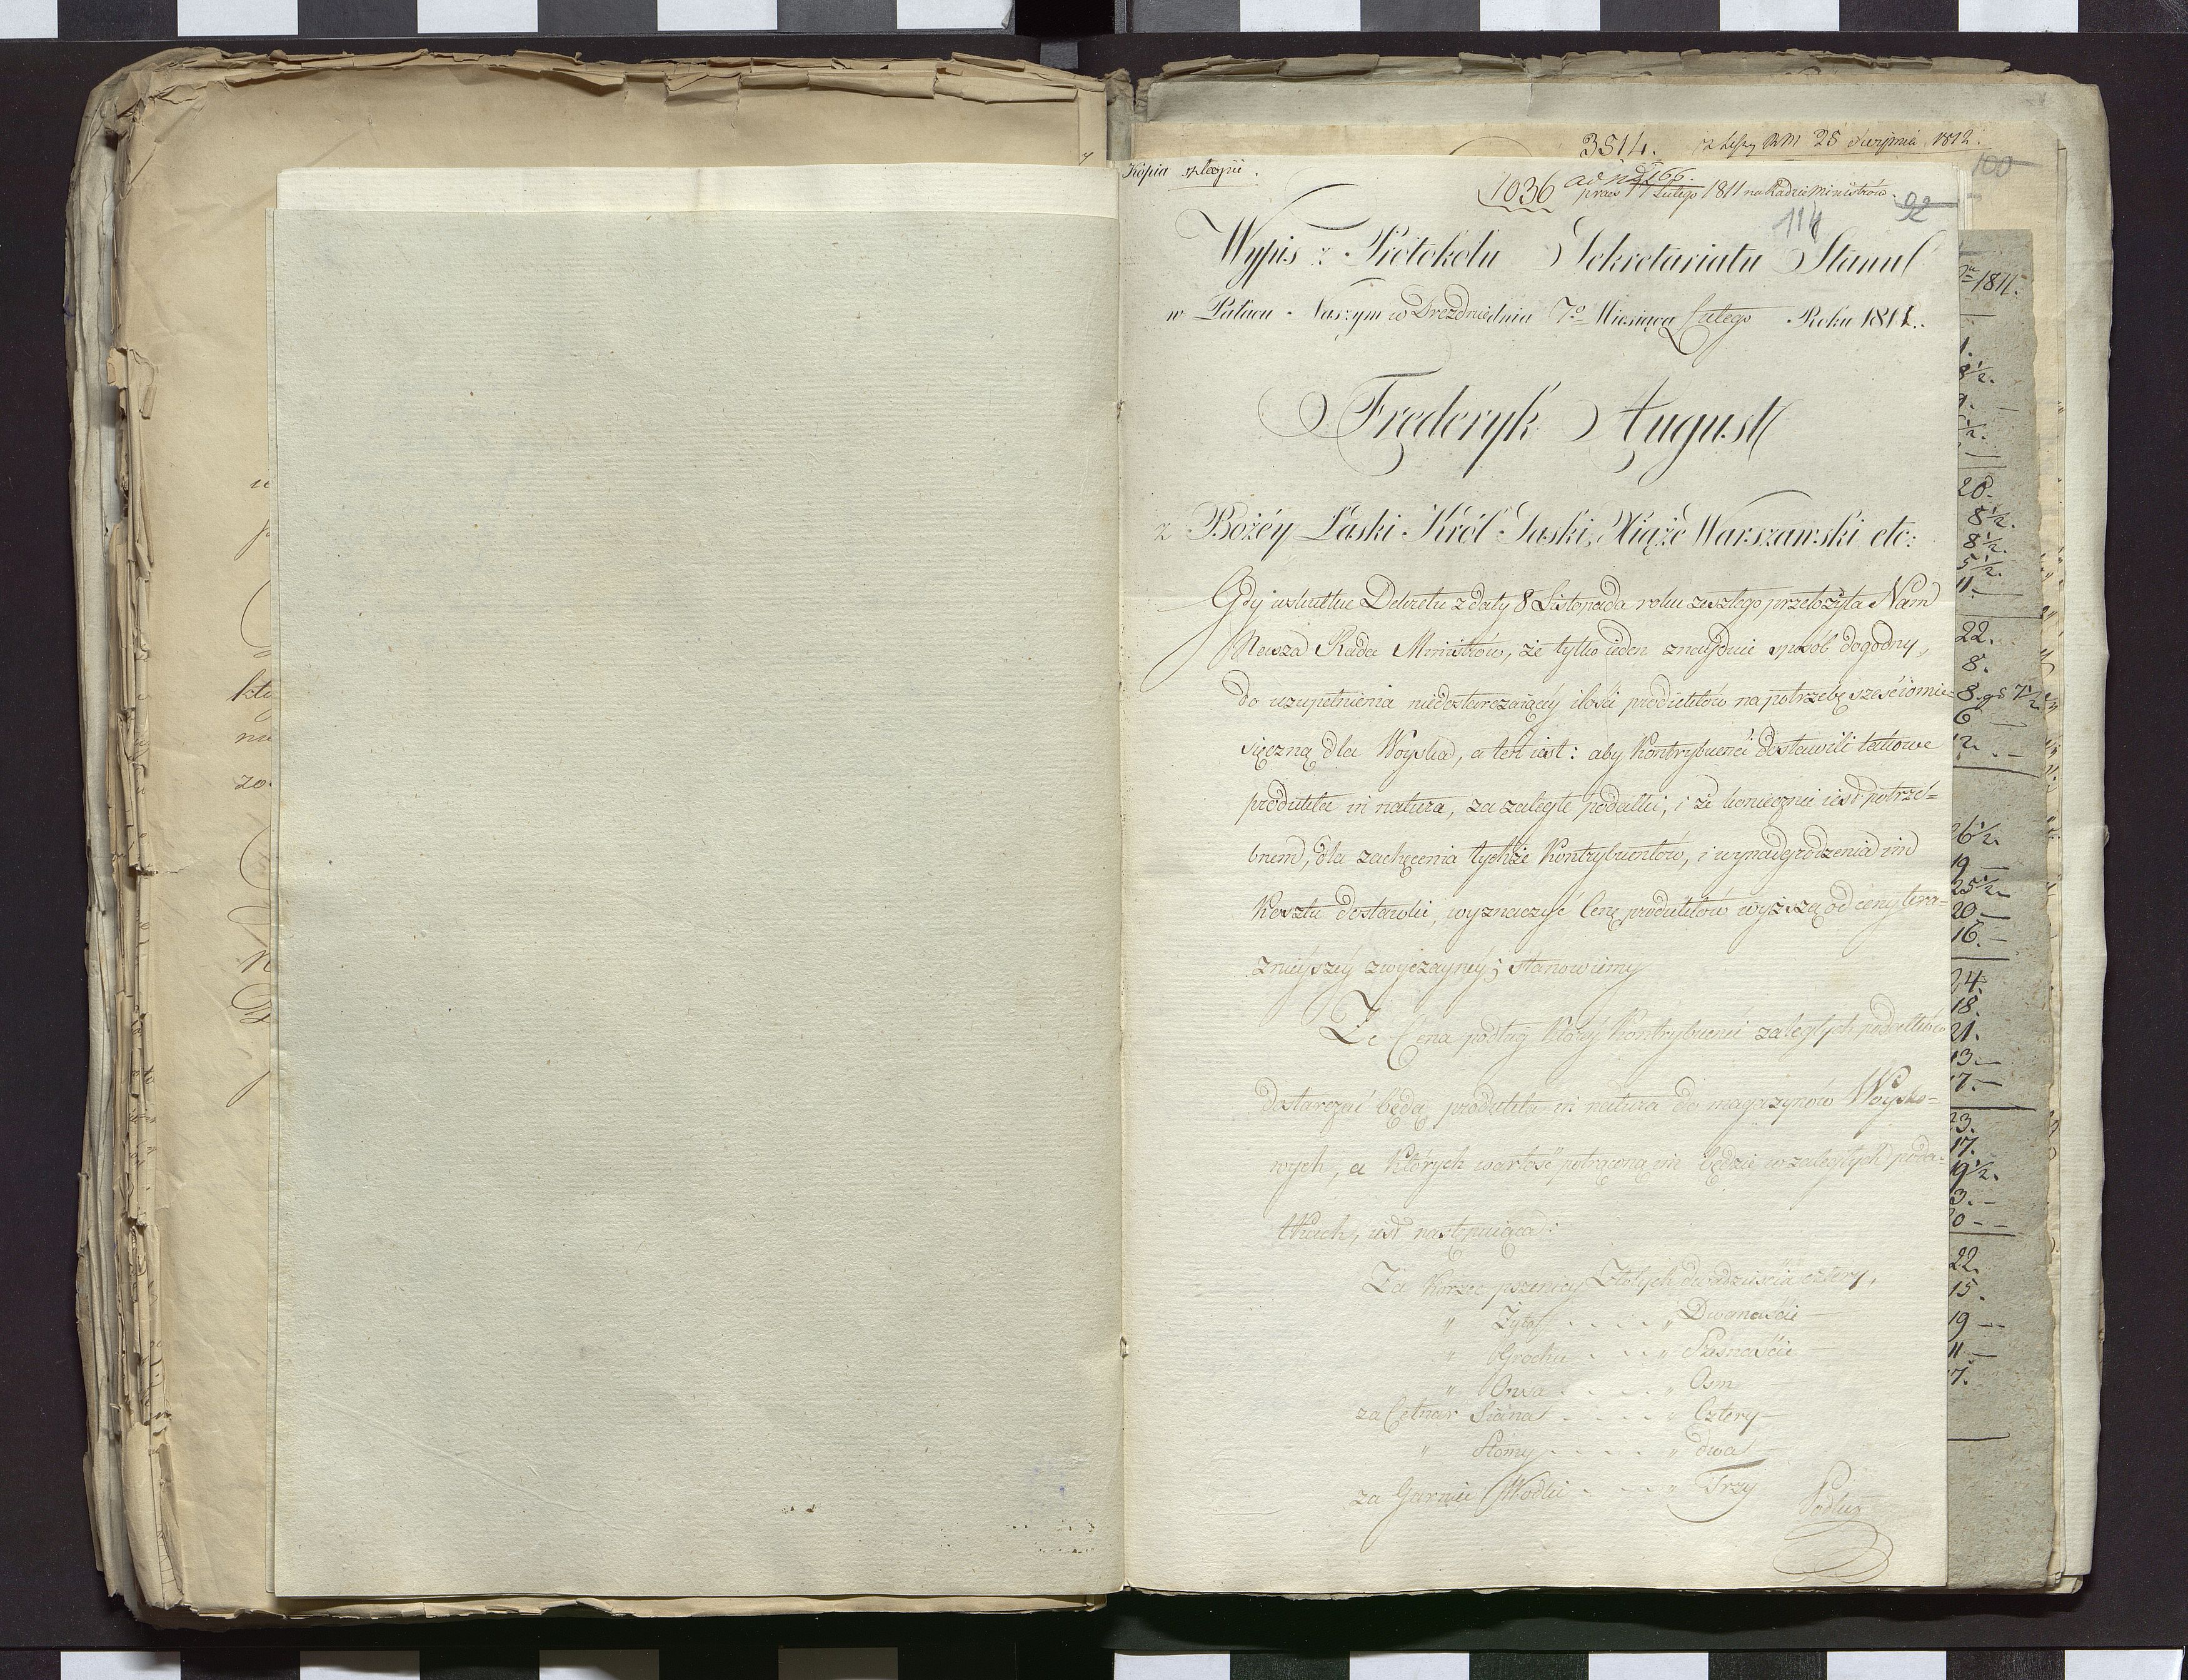 Kopia z kopii.
3514. 25 Sierpnia 1812.
1036 ad nr 166.
praes 17 Lutego 1811 na Radzie Ministrów.
100
92
114
Wypis z Protokołu Sekretariatu Stanu
w Pałacu Naszym w Dreznie dnia 7º Miesiąca Lutego Roku 1811.
Frederyk August
z Bożéy Łaski Król Saski, Xiąże Warszawski etc:
Gdy wskutku Dekretu z daty 8 Listopada roku zeszłego, przełożyła Nam
Nasza Rada Ministrów, że tylko ieden znayduie sposób dogodny,
do uzupełnienia niedostarczaiącéy ilości produktów na potrzebę sześciomie=
sięczną dla Woyska, a ten iest: aby Kontrybuenci dostawili takowe
produkta in natura, za zaległe podatki; i że koniecznie iest potrze=
bnem, dla zachęcenia tychże Kontrybuentów, i wynadgrodzenia im
Kosztu dostawki, wyznaczyć Cenę produktów wyższą od ceny tera=
znieyszey zwyczayney; stanowiemy
Że Cena podług któréy Kontrybuenci zaległych podatków
dostarczać będą produkta in natura do magazynów Woysko=
wych, a których wartość potrącona im będzie w zaległych poda=
tkach, iest następuiąca:
Za Korzec pszenicy Złotych dwadzieścia cztery,
" Żyta . . . . " Dwanaście —
" Grochu . . . " Szesnaście —
" Owsa . . . . " Osm
za Cetnar Siana . . . . " Cztery —
" Słomy . . . . " dwa
za Garniec Wodki . . . " Trzy
Podług
1811.
8½.
20.
8½.
8½.
5½.
11.
22.
8.
8. gs 7½
6
2. —
6½
19
25½
20 —
16. —
24.
18.
21.
13. —
17. —
23.
17.
19½.
3. —
0 — —
22.
15.
19 —
11 —
17.